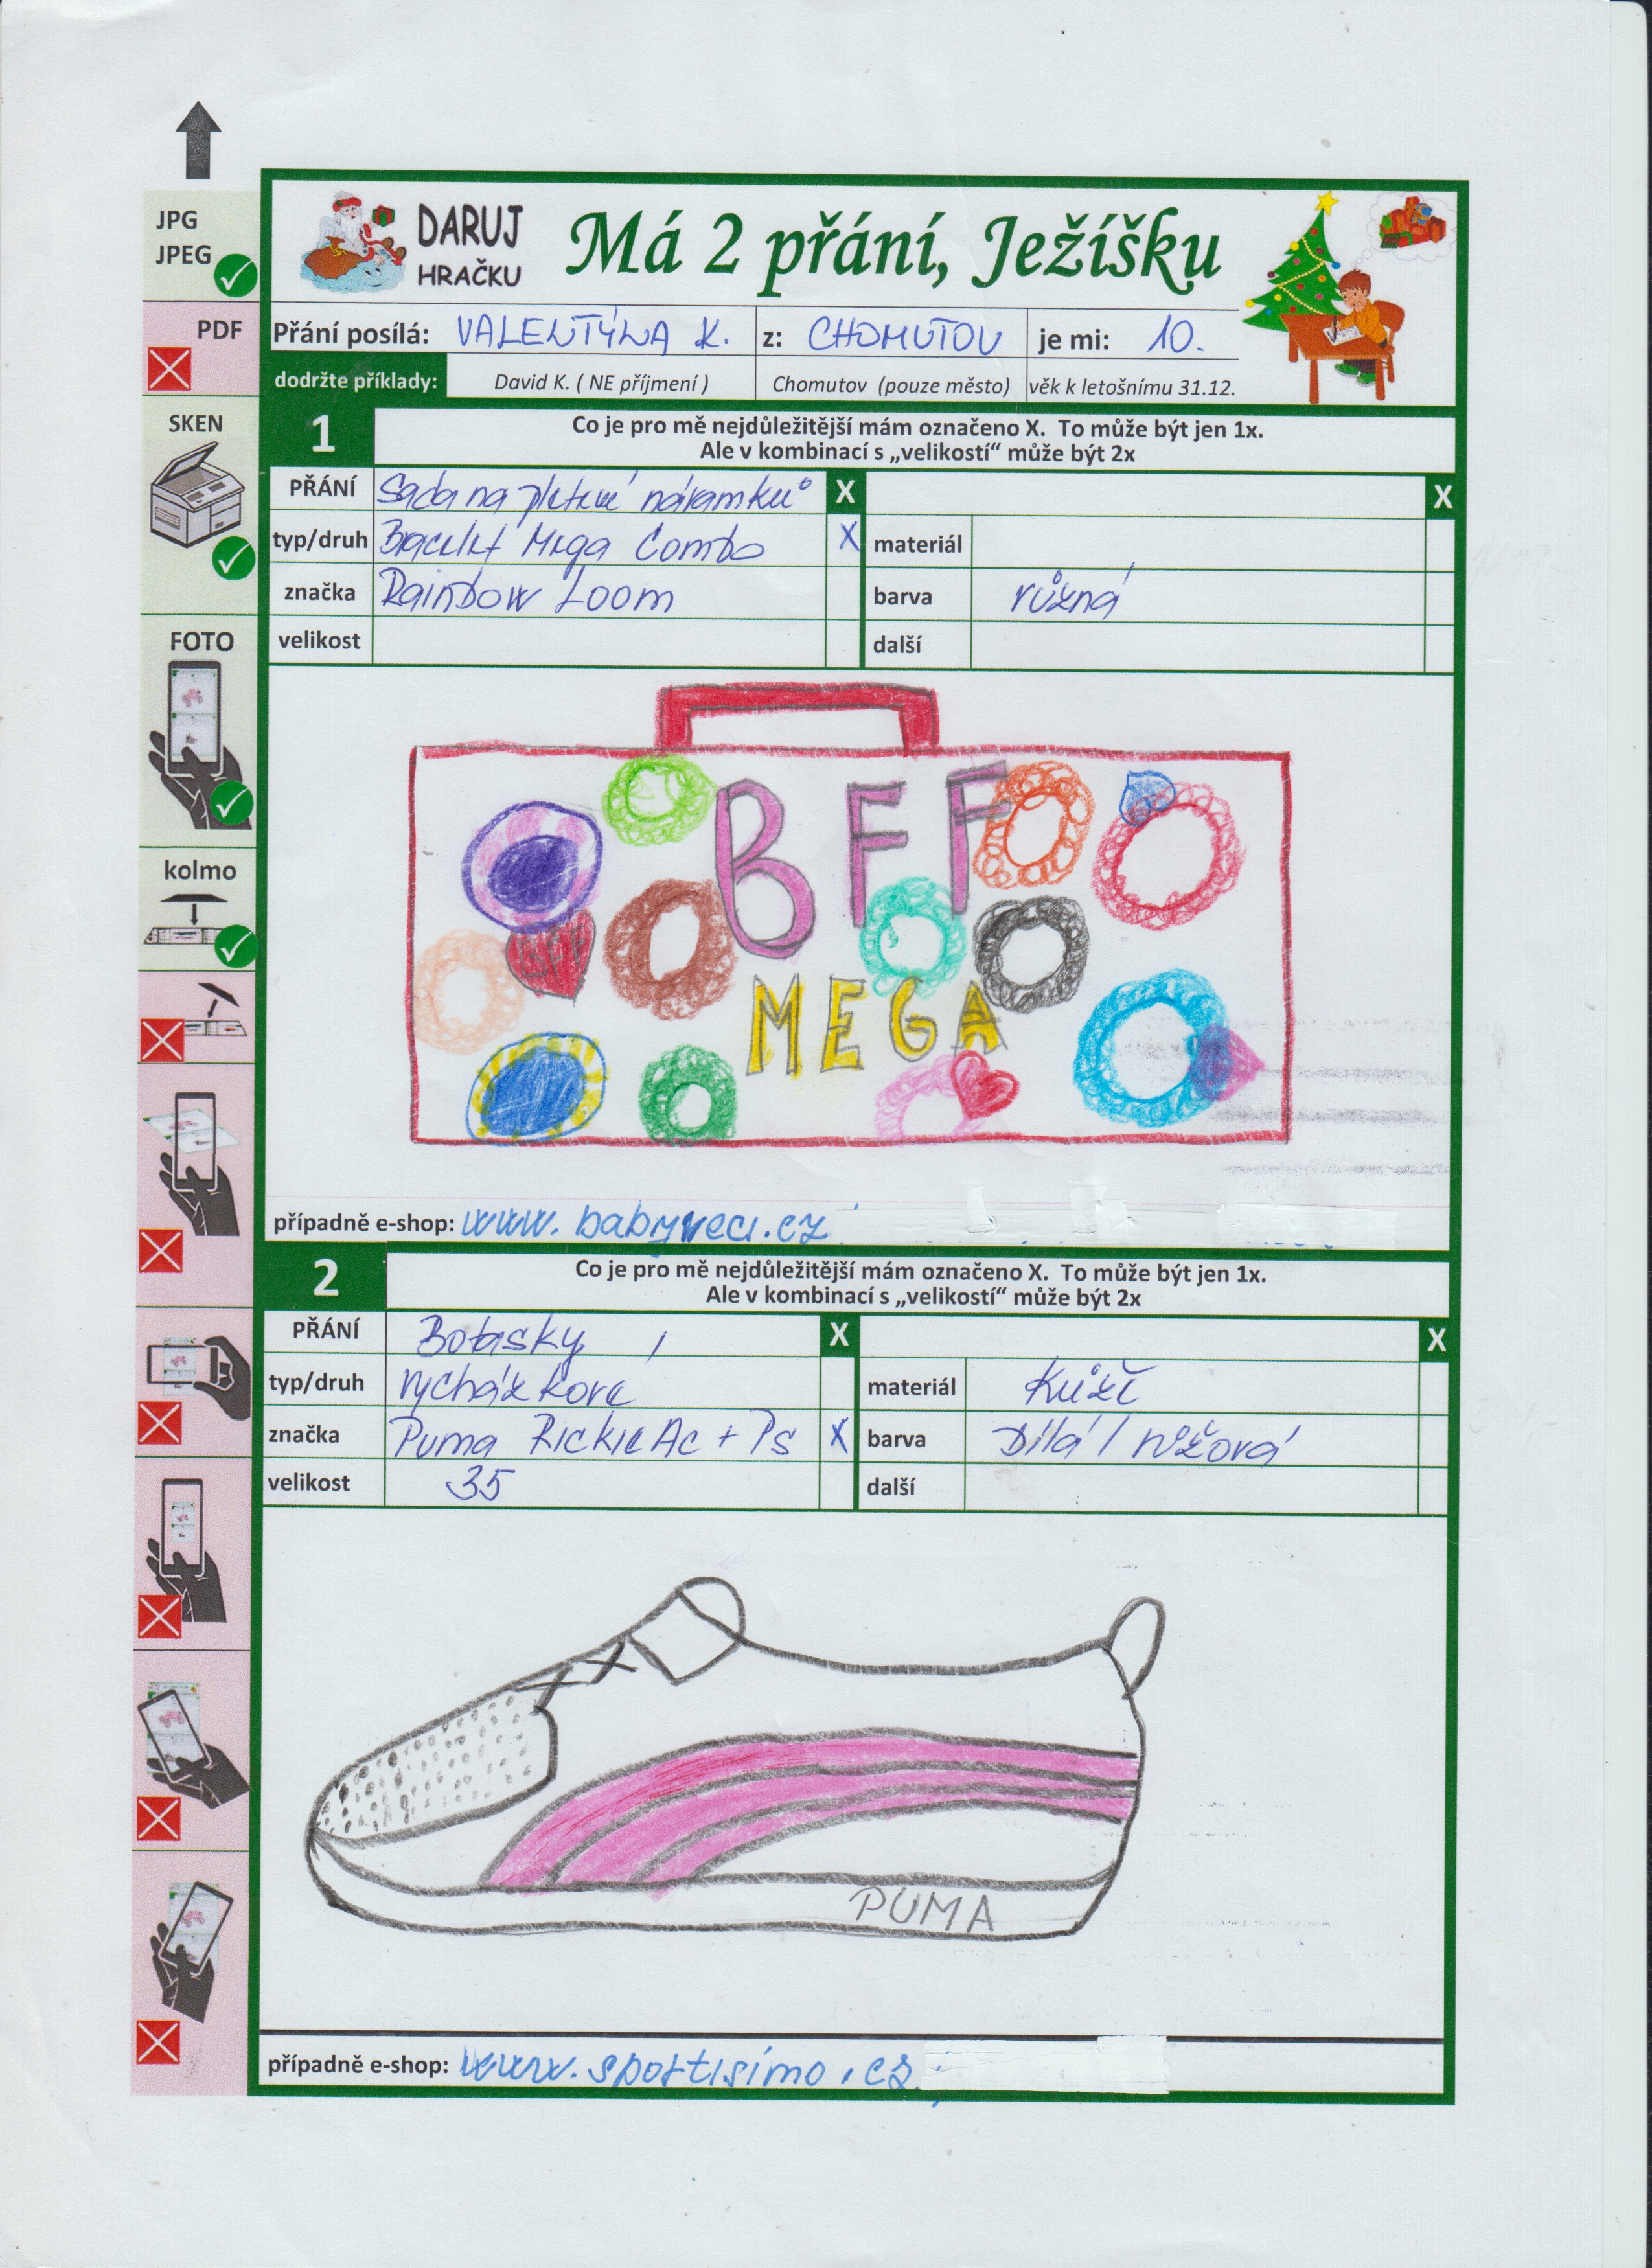 JPG
JPEG
PDF
SKEN
FOTO
kolmo
DARUJ
HRAČKU
Má 2 přání, Ježíšku
Přání posílá: VALENTÝNA K. z: CHOMUTOV je mi: 10.
dodržte příklady: David K. ( NE příjmení ) Chomutov (pouze město) věk k letošnímu 31.12.
1 Co je pro mě nejdůležitější mám označeno X. To může být jen 1x.
Ale v kombinací s „velikostí“ může být 2x
PŘÁNÍ Sada na pletení náramků X X
typ/druh Bracelet Mega Combo X materiál
značka Rainbow Loom barva různá
velikost další
BFF
BFF
MEGA
případně e-shop: www.babyveci.cz
2 Co je pro mě nejdůležitější mám označeno X. To může být jen 1x.
Ale v kombinací s „velikostí“ může být 2x
PŘÁNÍ Botasky X X
typ/druh vycházkové materiál Kůže
značka Puma Rickie Ac + Ps X barva Bílá / růžová
velikost 35 další
PUMA
případně e-shop: www.sportisimo.cz